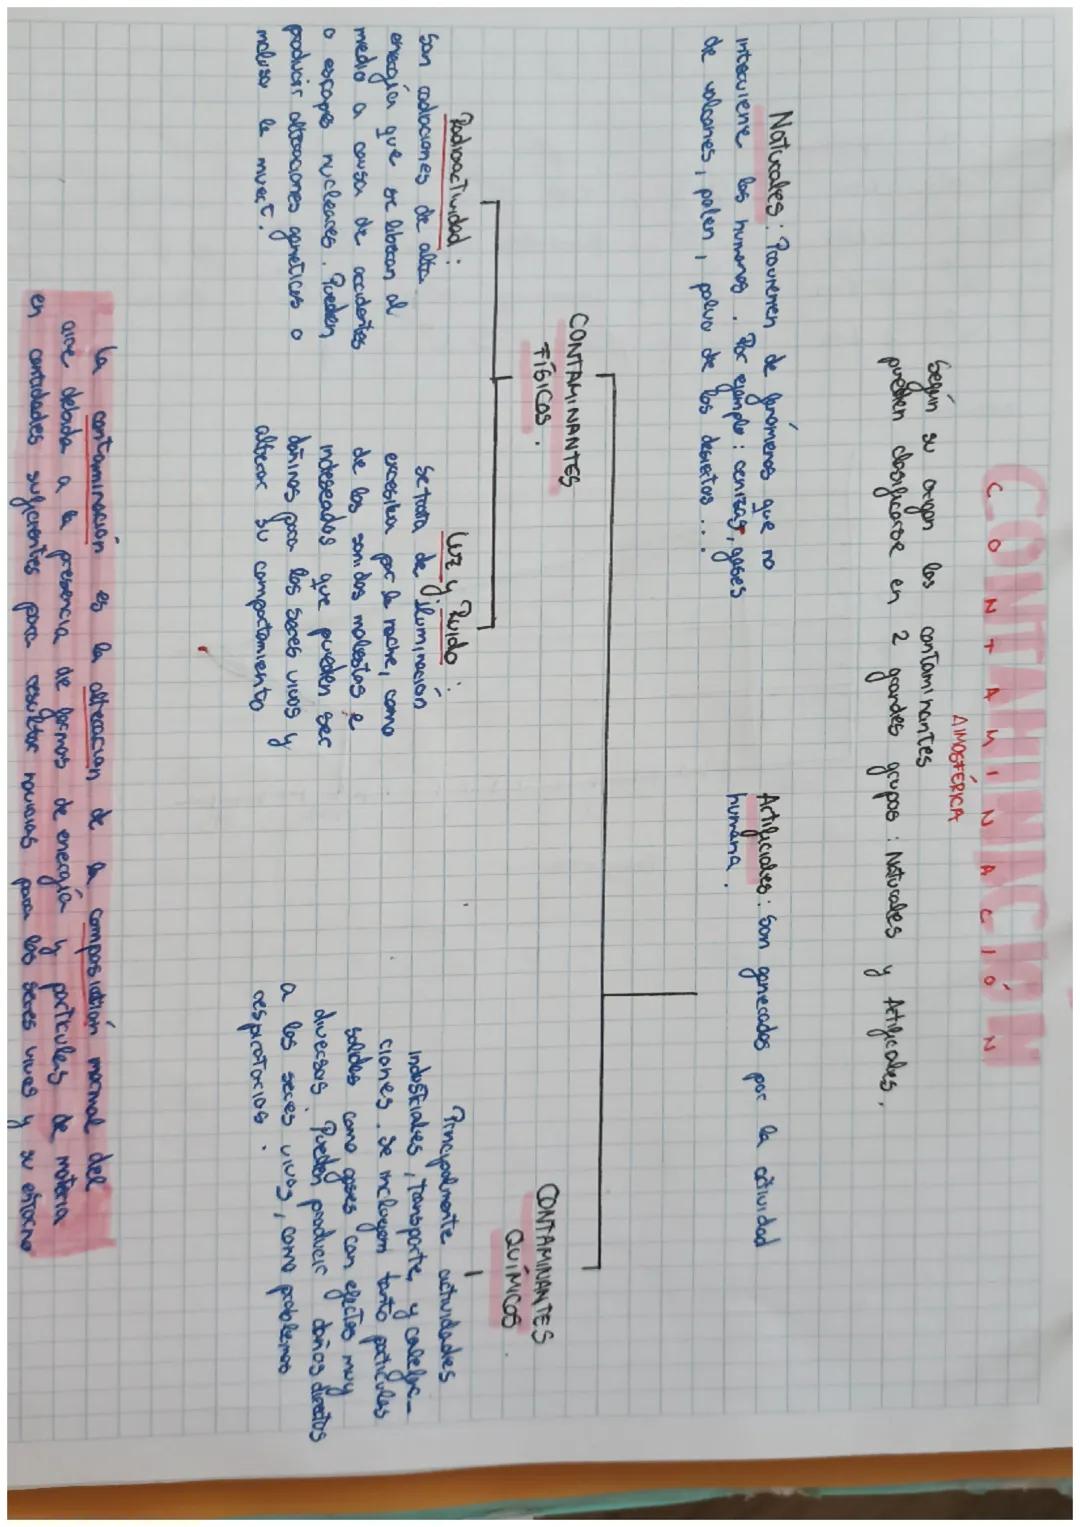 CONTAMINACIÓN
ATMOSFÉRICA
Según su origen los contaminantes
pueden clasificarse en 2 grandes grupos: Naturales y Artificales.
Naturales: Provienen de fenómenos que no
interviene los humanos. Por ejemplo: cenizas, gases
de volcanes, polen, polvo de los desiertos...
Artificiales: Son generados por la actividad
humana.
CONTAMINANTES
FÍSICOS.
CONTAMINANTES
QUÍMICOS.
Radioactividad:
Son radiaciones de alta
energía que se liberan al
medio a causa de accidentes
o escapes nucleares. Pueden
producir alteraciones geneticas o
incluso la muert.
Luz y Ruido:
Se trata de iluminación
excesiva por la noche, como
de los sonidos molestos e
indeseados que pueden ser
dañinos para los seres vivos y
alterar su comportamiento
Principalmente actividades
industriales, transporte, y calefac-
ciones. Se incluyen tanto partículas
solidas como gases con efectos muy
diversos. Pueden producir daños directos
a los seres vivos, como problemas
respiratorios.
La contaminación es la alteracion de la composiction normal del
aire debida a la presencia de formas de energía y particulas de materia
en cantidades suficientes para resultar nocivas para los seres vivos y su entorno